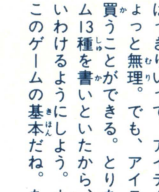 はっきりって
ょっと無理。でも、アイテ
買うことができる。とりな
ム13種を書いといたから、
いわけるようにしよう。
このゲームの基本だね。